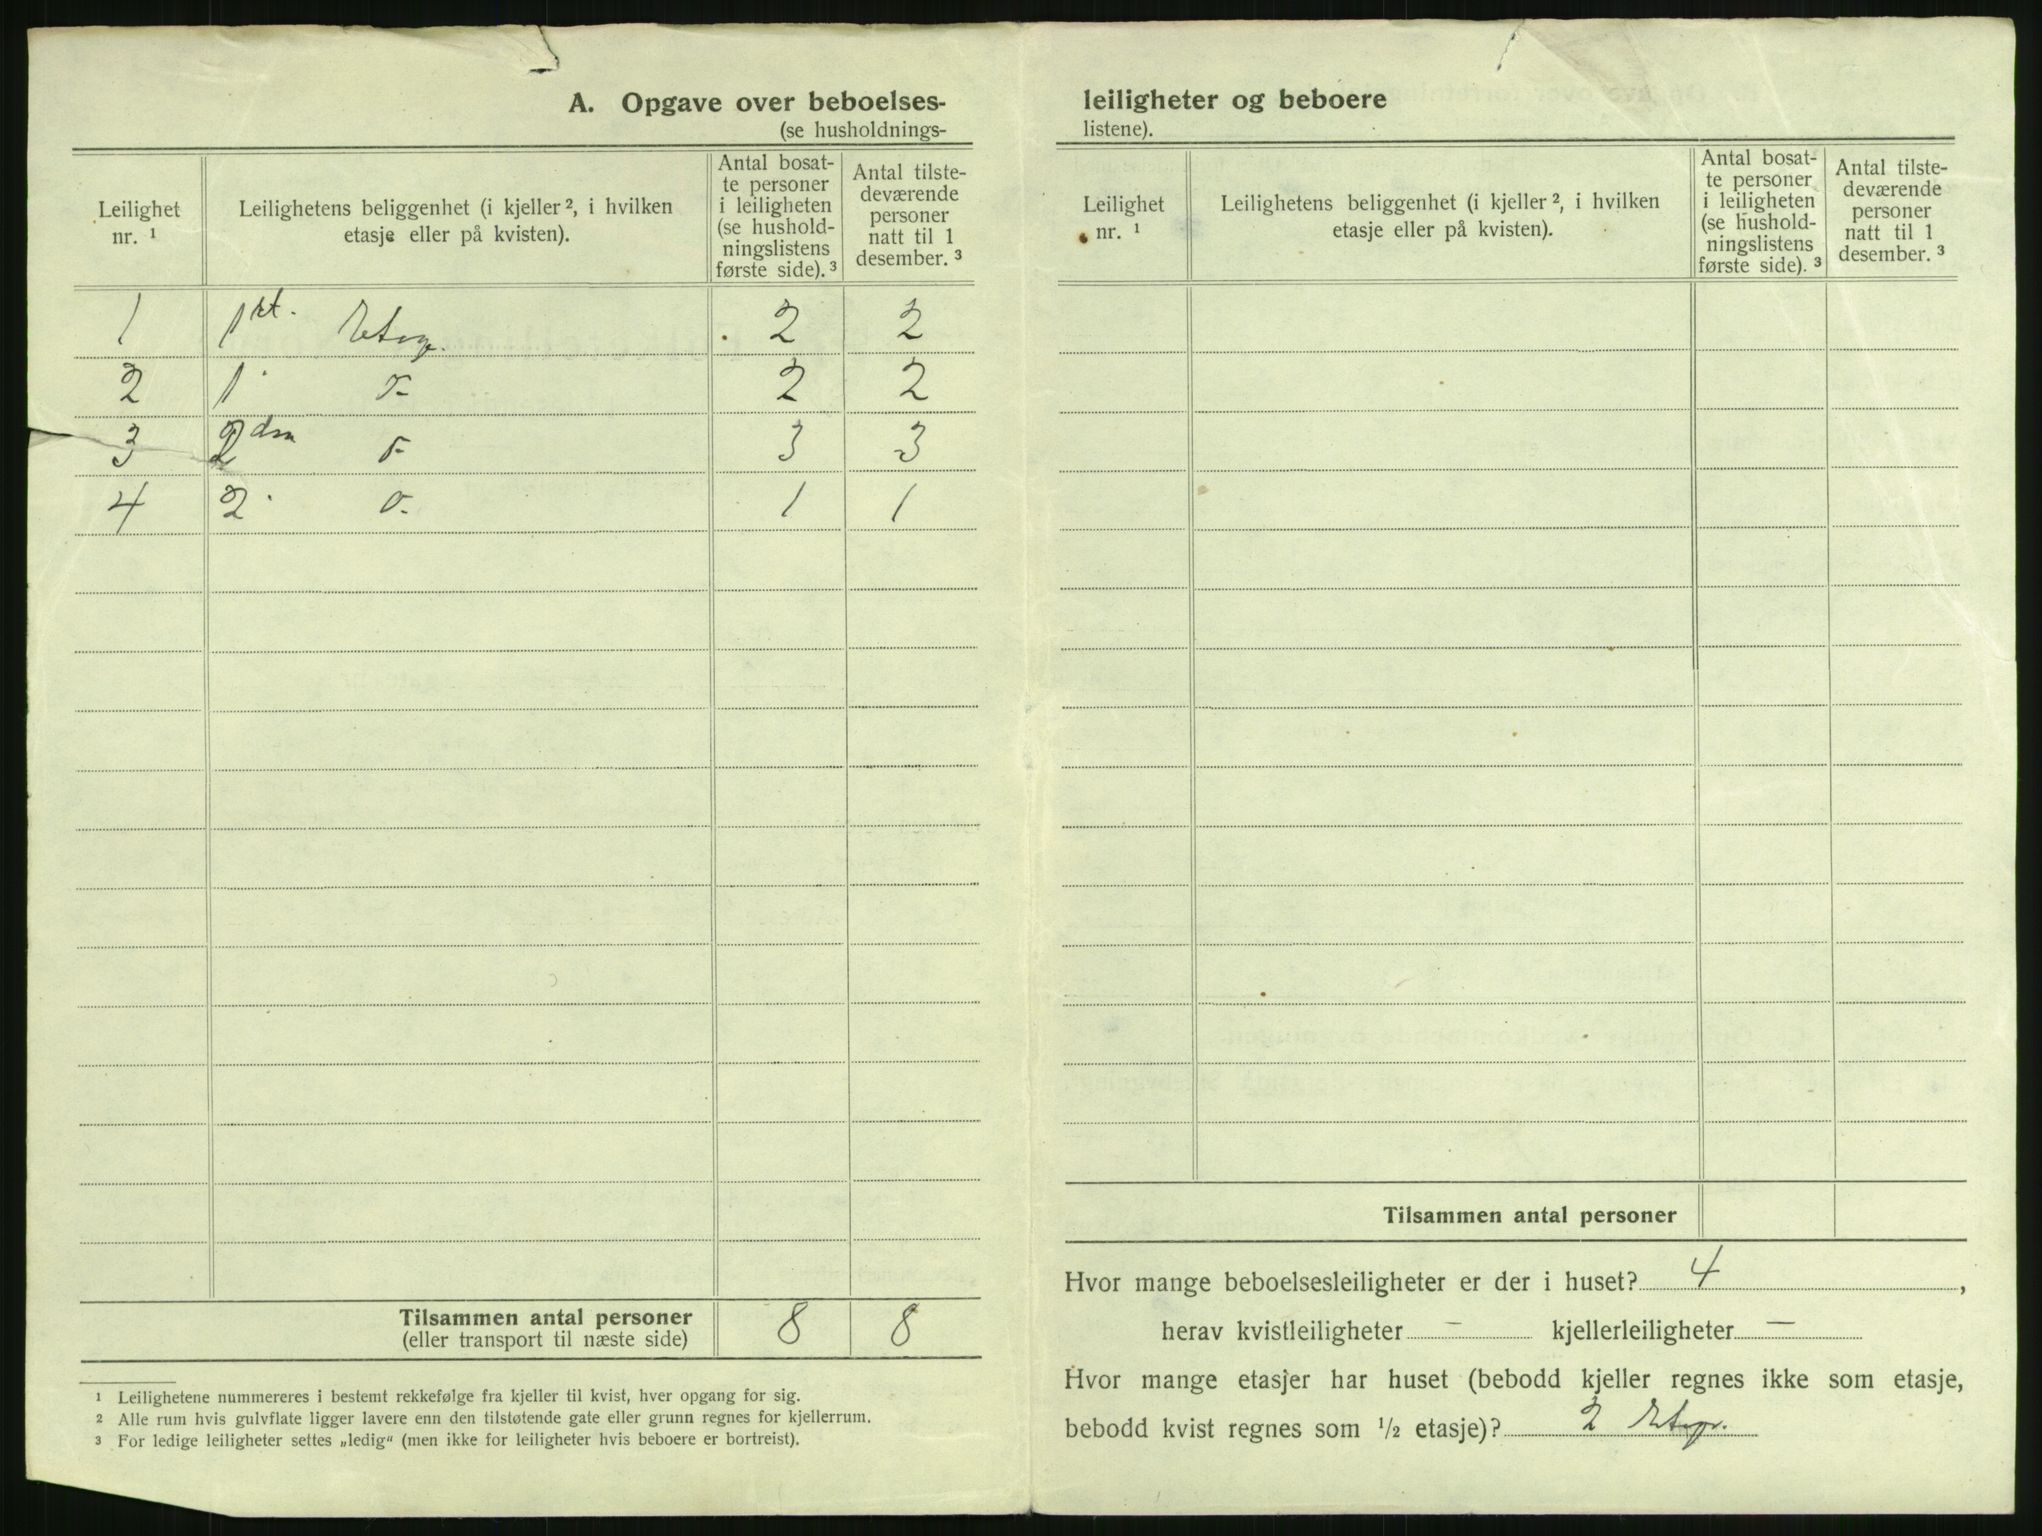 A. Opgave over beboelses-
(se husholdnings-
Leilighet nr. ¹
Leilighetens beliggenhet (i kjeller ², i hvilken etasje eller på kvisten).
Antal bosat-
te personer
i leiligheten
(se hushold-
ningslistens
første side). ³
Antal tilste-
deværende
personer
natt til 1
desember. ³
1 1st. Etage. 2 2
2 1. 2 2
3 2den 3 3
4 2. 1 1
Tilsammen antal personer 8 8
(eller transport til næste side)
¹ Leilighetene nummereres i bestemt rekkefølge fra kjeller til kvist, hver opgang for sig.
² Alle rum hvis gulvflate ligger lavere enn den tilstøtende gate eller grunn regnes for kjellerrum.
³ For ledige leiligheter settes „ledig“ (men ikke for leiligheter hvis beboere er bortreist).
leiligheter og beboere
listene).
Leilighet nr. ¹
Leilighetens beliggenhet (i kjeller ², i hvilken etasje eller på kvisten).
Antal bosat-
te personer
i leiligheten
(se hushold-
ningslistens
første side). ³
Antal tilste-
deværende
personer
natt til 1
desember. ³
Tilsammen antal personer
Hvor mange beboelsesleiligheter er der i huset? 4,
herav kvistleiligheter — kjellerleiligheter —
Hvor mange etasjer har huset (bebodd kjeller regnes ikke som etasje,
bebodd kvist regnes som ½ etasje)? 2 Etager.